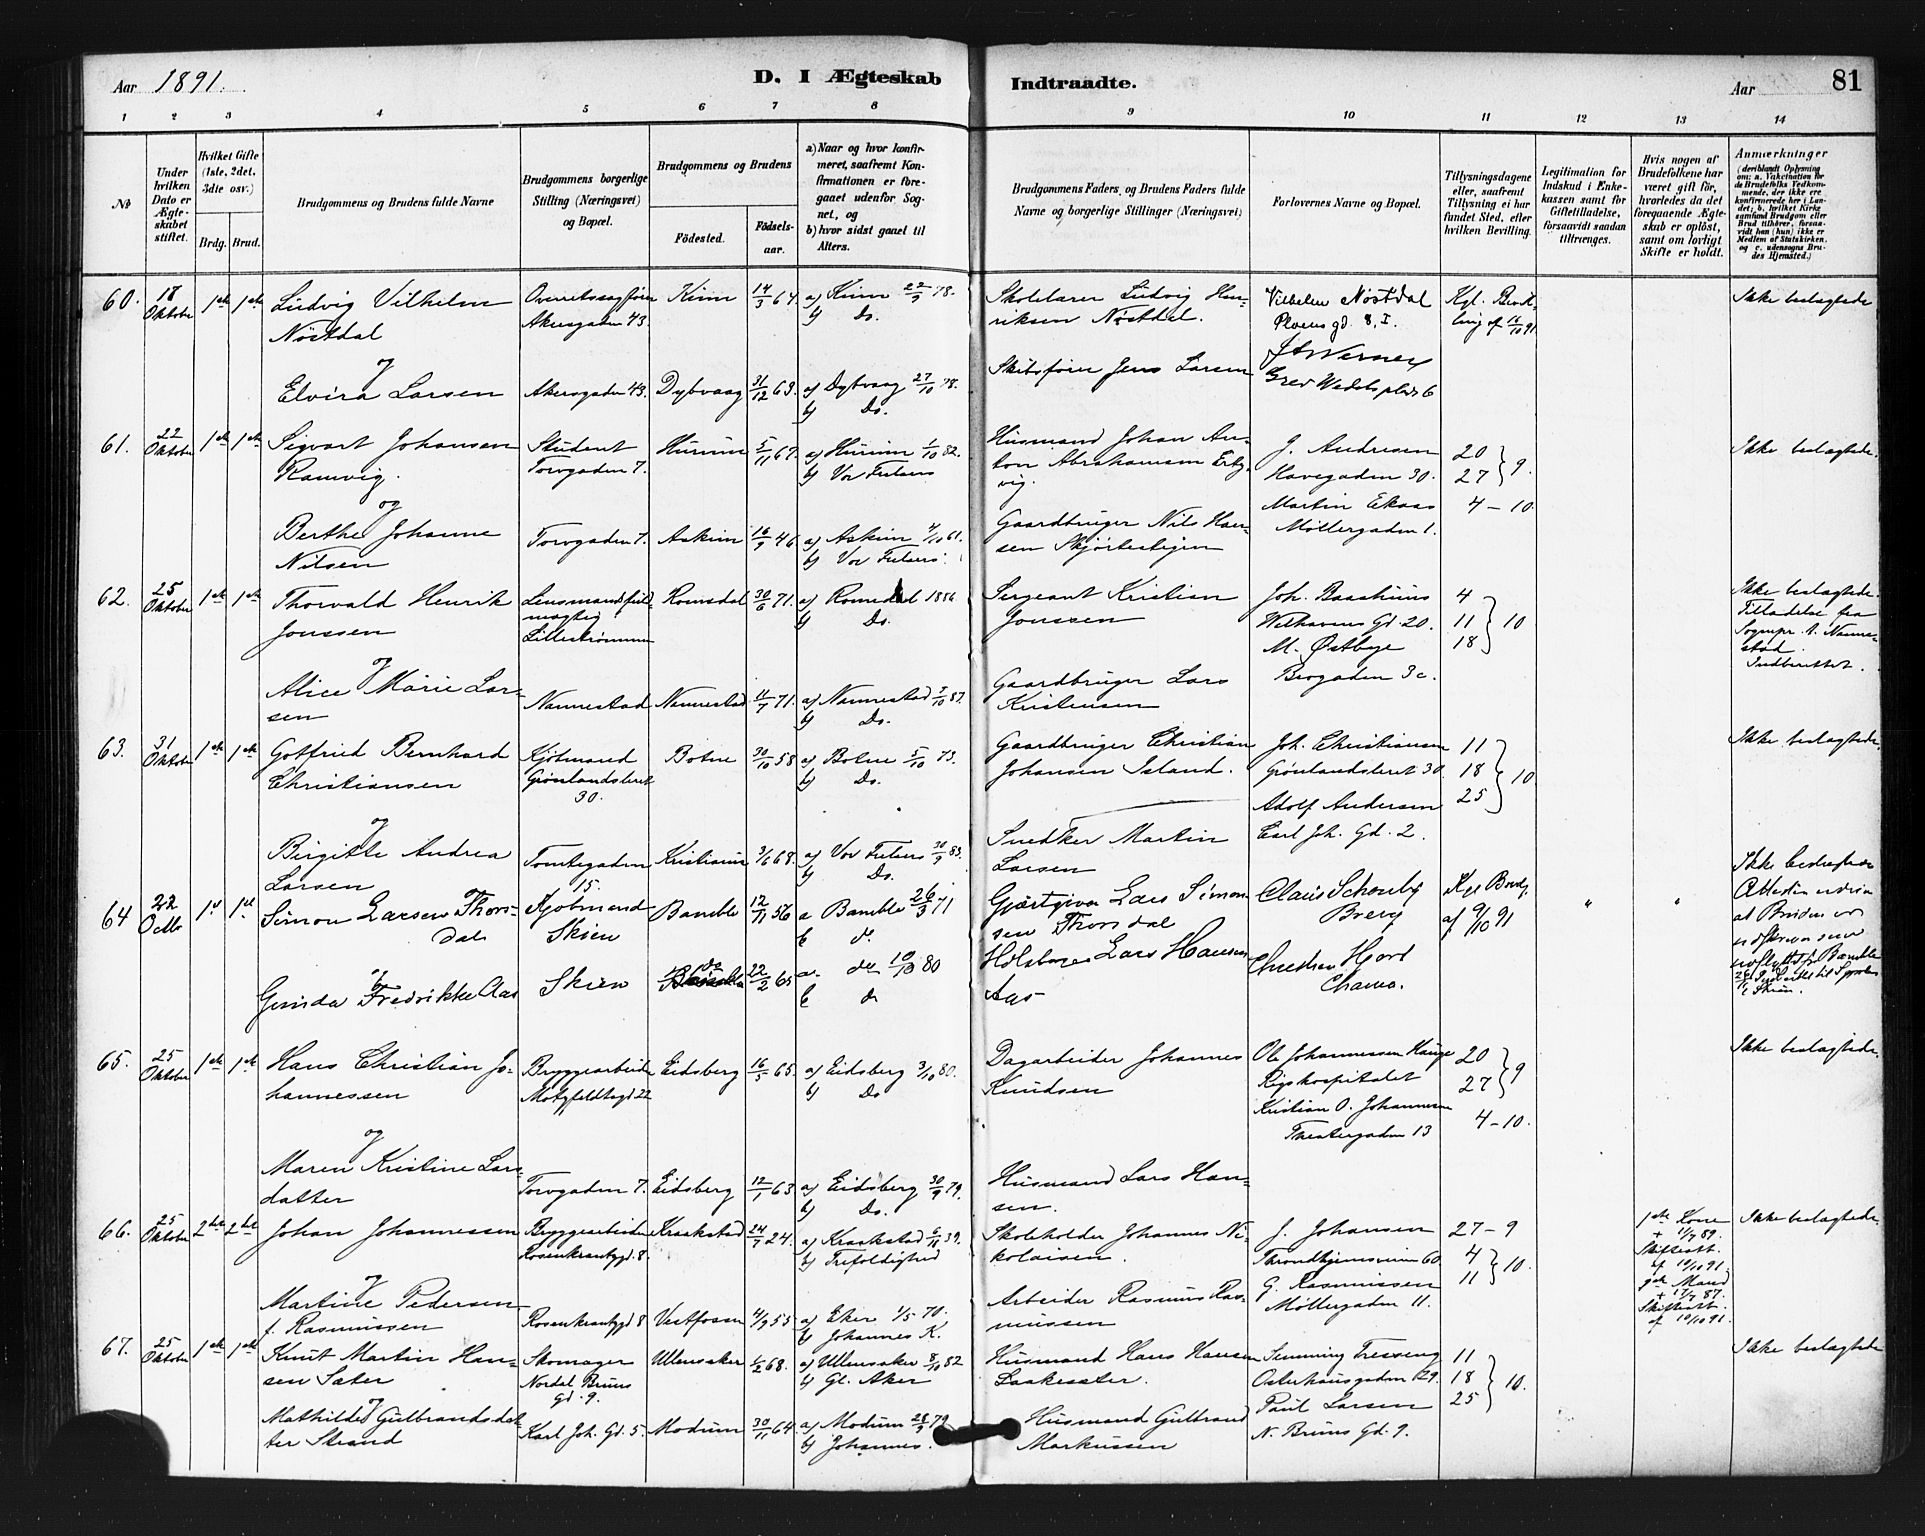 Aar 1891.
D. I Ægteskab
Indtraadte.
Aar
81
1 2 3 4 5 6 7 8 9 10 11 12 13 14
№
Under hvilken Dato er Ægteskabet stiftet.
Hvilket Gifte (1ste, 2det, 3die osv.)
Brdg. Brud.
Brudgommens og Brudens fulde Navne
Brudgommens borgerlige Stilling (Næringsvei) og Bopæl.
Brudgommens og Brudens
Fødested.
Fødselsaar.
a) Naar og hvor konfirmeret, saafremt Konfirmationen er foregaaet udenfor Sognet, og
b) hvor sidst gaaet til Alters.
Brudgommens Faders og Brudens Faders fulde Navne og borgerlige Stillinger (Næringsvei)
Forlovernes Navne og Bopæl.
Tillysningsdagene eller, saafremt Tillysning ei har fundet Sted, efter hvilken Bevilling.
Legitimation for Indskud i Enkekassen samt for Giftetilladelse, forsaavidt saadan tiltrænges.
Hvis nogen af Brudefolkene har været gift før, hvorledes da det foregaaende Ægteskab er opløst, samt om lovligt Skifte er holdt.
Anmærkninger (deriblandt Oplysning om: a. Vakcination for de Brudefolks Vedkommende, der ikke ere konfirmerede her i Landet; b. hvilket Kirkesamfund Brudgom eller Brud tilhører, forsaavidt han (hun) ikke er Medlem af Statskirken, og c. udensogns Brudes Hjemsted.)
60. 18 Oktober 1ste 1ste
Ludvig Vilhelm
Nøstdal
Overretssagfører
Akersgaden 43.
Kinn 14/3 64.
a) Kinn 22/9 78.
b) Do.
Skolelærer Ludvig Henriksen Nøstdal.
Vilhelm Nøstdal
Ploens gd. 8, I.
Kgl. Bevilling af 16/10 91
Ikke beslægtede
og
Elvira Larsen
Akersgaden 43.
Dybvaag 31/12 63.
a) Dybvaag 27/10 78.
b) Do.
Skibsfører Jens Larsen
Werner
Grev Wedels plads 6
61. 22 Oktober 1ste 1ste
Sigvart Johansen
Ramvig.
Student
Torvgaden 7.
Hurum 5/11 67.
a) Hurum 1/10 82.
b) Vor Frelsers
Husmand Johan Anton Abrahamsen
J. Andresen
Havegaden 30.
20
27 } 9.
4 – 10.
Ikke beslægtede.
og
Berthe Johanne
Nilsen
Torvgaden 7.
Askim 16/9 46
a) Askim 4/10 61.
b) Vor Frelsers
Gaardbruger Nils Hansen Skjørtestigen
Martin Ekaas
Møllergaden 1.
62. 25 Oktober 1ste 1ste
Thorvald Henrik
Jonssen
Lensmandsfuldmægtig
Lillestrømmen
Romsdal 30/6 71.
a) Romsdal 1886
b) Do.
Sergeant Kristian
Jonssen
Joh. Baashuus
Welhavens Gd. 20.
4
11
18 } 10
Ikke beslægtede.
Tilladelse fra
Sognepr. i Nannestad
Indberettet.
og
Alice Marie Larsen
Nannestad
Nannestad 4/7 71.
a) Nannestad 2/10 87.
b) Do.
Gaardbruger Lars
Kristensen
M. Østbye
Brogaden 3c.
63. 31 Oktober 1ste 1ste
Gotfried Bernhard
Christiansen
Kjøbmand
Grønlandsleret
30.
Botne 30/10 58
a) Botne 5/10 73.
b) Do.
Gaardbruger Christian
Johansen Island.
Joh. Christiansen
Grønlandsleret 30.
11
18
25 } 10.
Ikke beslægtede.
og
Birgitte Andrea
Larsen
Tomtegaden
15.
Kristiania 3/6 68.
a) Vor Frelsers 30/9 83.
b) Do.
Snedker Martin
Larsen
Adolf Andersen
Carl Joh. Gd. 2.
64 22 Octb 1st 1st
Simon Larsen Thorsdal
Kjøbmand
Skien
Bamble 12/11 56
a Bamble 26/3 71
b do
Gjæstgiver Lars Simonsen Thorsdal
Claus Schouby
Brevig
Kgl Bevlg
af 9/10 91
"
"
og
Gunda Fredrikke Aas
Skien
do 22/2 65
a do 10/10 80
b do
Lars Hansen
Aas
Christian Hjort
65. 25 Oktober 1ste 1ste
Hans Christian Johannessen
Bryggearbeider
Motzfeldtsgd 22
Eidsberg 16/5 65.
a) Eidsberg 3/10 80.
b) Do
Dagarbeider Johannes
Knudsen
Ole Johannessen Hauge
Rigshospitalet
20
27 } 9
4 – 10.
Ikke beslægtede.
og
Maren Kristine Larsdatter
Torvgaden 7.
Eidsberg 12/1 63
a) Eidsberg 30/9 79.
b) Do.
Husmand Lars Hansen.
Kristian O. Johannesen
Theatergaden 13
66. 25 Oktober 2det 2det
Johan Johannessen
Bryggearbeider
Rosenkrantzgd. 8.
Kraakstad 24/7 24.
a) Kraakstad 6/11 39.
b) Trefoldighed
Skoleholder Johannes Nikolaisen.
J. Johansen
Throndhjemsveien 60.
27 – 9
4
11 } 10.
1ste Kone
+ 11/7 89.
Skifteatt.
af 10/10 91.
Ikke beslægtede
og
Martine Pedersen
f. Rasmussen
Rosenkrantzgd 8
Vestfossen 4/9 55
a) Eker 1/5 70.
b) Johannes K.
Arbeider Rasmus Rasmussen
G. Rasmussen
Møllergaden 11.
Mand
+ 17/7 87.
Skifteatt.
af 10/10 91.
67. 25 Oktober 1ste 1ste
Knut Martin Hansen Sæter
Skomager
Nordal Bruns
Gd. 9.
Ullensaker 1/2 68.
a) Ullensaker 8/10 82
b) Gl. Aker
Husmand Hans Hansen
Laakesæter.
Simming Tresseng
Osterhausgaden 29.
11
18
25 } 10.
Ikke beslægtede
og
Mathilde Gulbrandsdatter Strand
Karl Joh. Gd. 5.
Modum 30/11 64
a) Modum 28/9 79
b) Johannes.
Husmand Gulbrand
Markussen
Paul Larsen
N. Bruns Gd. 9.